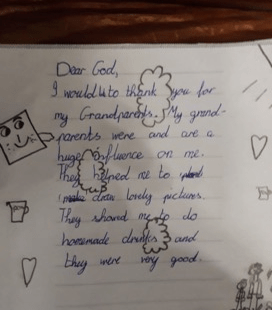 Dear God,
I would like to thank you for
my Grandparents. My grand-
parents were and are a
huge influence on me.
They helped me to
draw lovely pictures.
They showed me to do
homemade drinks and
they were very good.